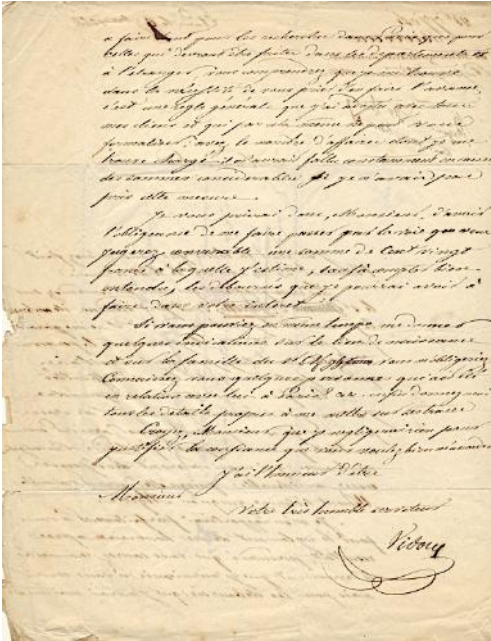 à faire tant pour les recherches dans
celles qui devront être faites dans les départements et
à l'étranger, vous comprendrez que je me trouve
dans la nécessité de vous prier d'en faire l'avance,
c'est une règle générale que j'ai adoptée avec tous
mes clients et qui par elle même ne peut vous
formaliser: avec le nombre d'affaires dont je me
trouve chargé il m'aurait fallu constamment en avance
des sommes considérables si je n'avais pas
pris cette mesure.
Je vous prierai donc, Monsieur, d'avoir
l'obligeance de me faire passer par la voie que vous
jugerez convenable une somme de Cent vingt
francs à laquelle j'estime, sauf à compter bien
entendu, les débourses que je pourrai avoir à
faire dans votre intérêt.
Si vous pouviez en même temps me donner
quelques indications sur le lieu de naissance
et sur la famille du Sr vous m'obligeriez
Connaissez vous quelques personnes qui
en relations avec lui à Paris? donnez moi
tous les détails propres à me mettre sur ses traces
Croyez, Monsieur, que je ne négligerai rien pour
justifier la confiance que vous voulez bien m'accorder
J'ai l'honneur d'être
Monsieur
Votre très humble serviteur
Vidocq